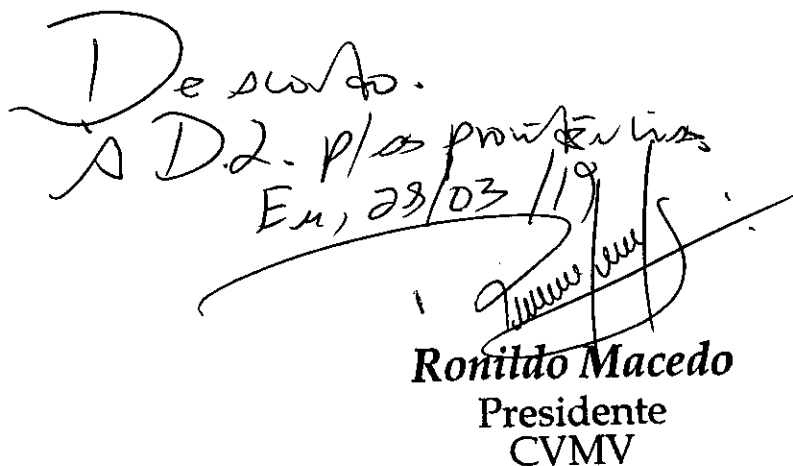 De acordo.
A D.L. p/ as providências
Em, 28/03/19
Ronildo Macedo
Presidente
CVMV